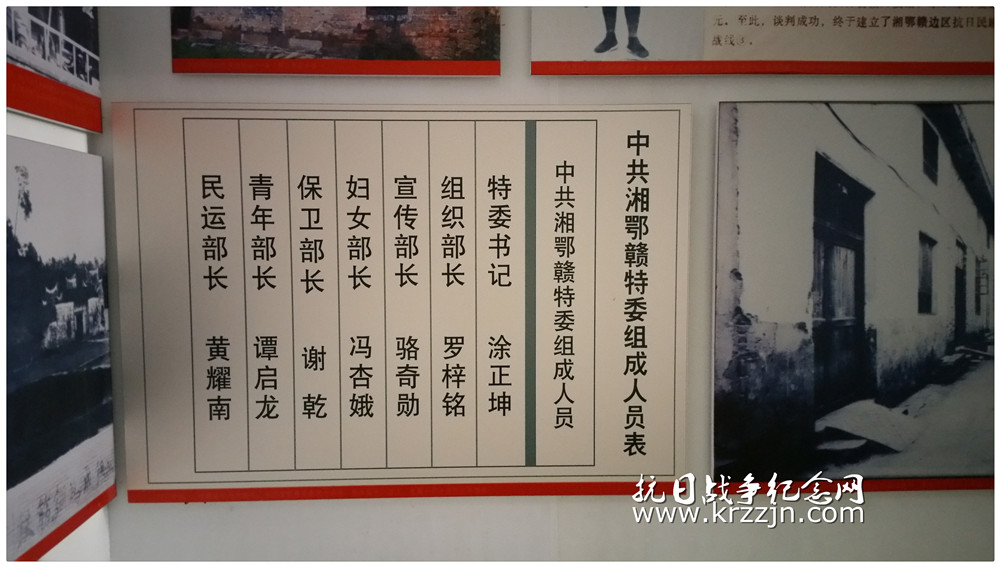 元。至此，谈判成功。终于建立了湘鄂赣边区抗日民
战线
中共湘鄂赣特委组成人员表
中共湘鄂赣特委组成人员
特委书记 涂正坤
组织部长 罗梓铭
宣传部长 骆奇勋
妇女部长 冯杏娥
保卫部长 谢乾
青年部长 谭启龙
民运部长 黄耀南
抗日战争纪念网
www.krzzjn.com